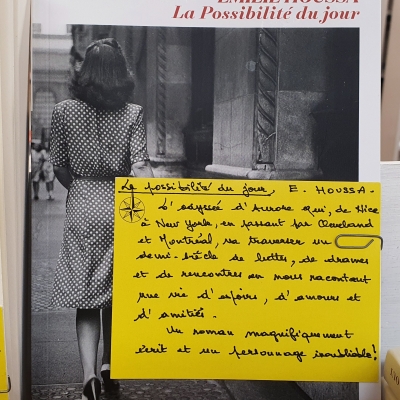 EMILIE HOUSSA
La Possibilité du jour
La possibilité du jour, E. HOUSSA.
L'odyssée d'Aurore qui, de Nice
à New York, en passant par Cleveland
et Montréal, va traverser un
demi-siècle de luttes, de drames
et de rencontres en nous racontant
une vie d'espoirs, d'amours et
d'amitiés.
Un roman magnifiquement
écrit et un personnage inoubliable!